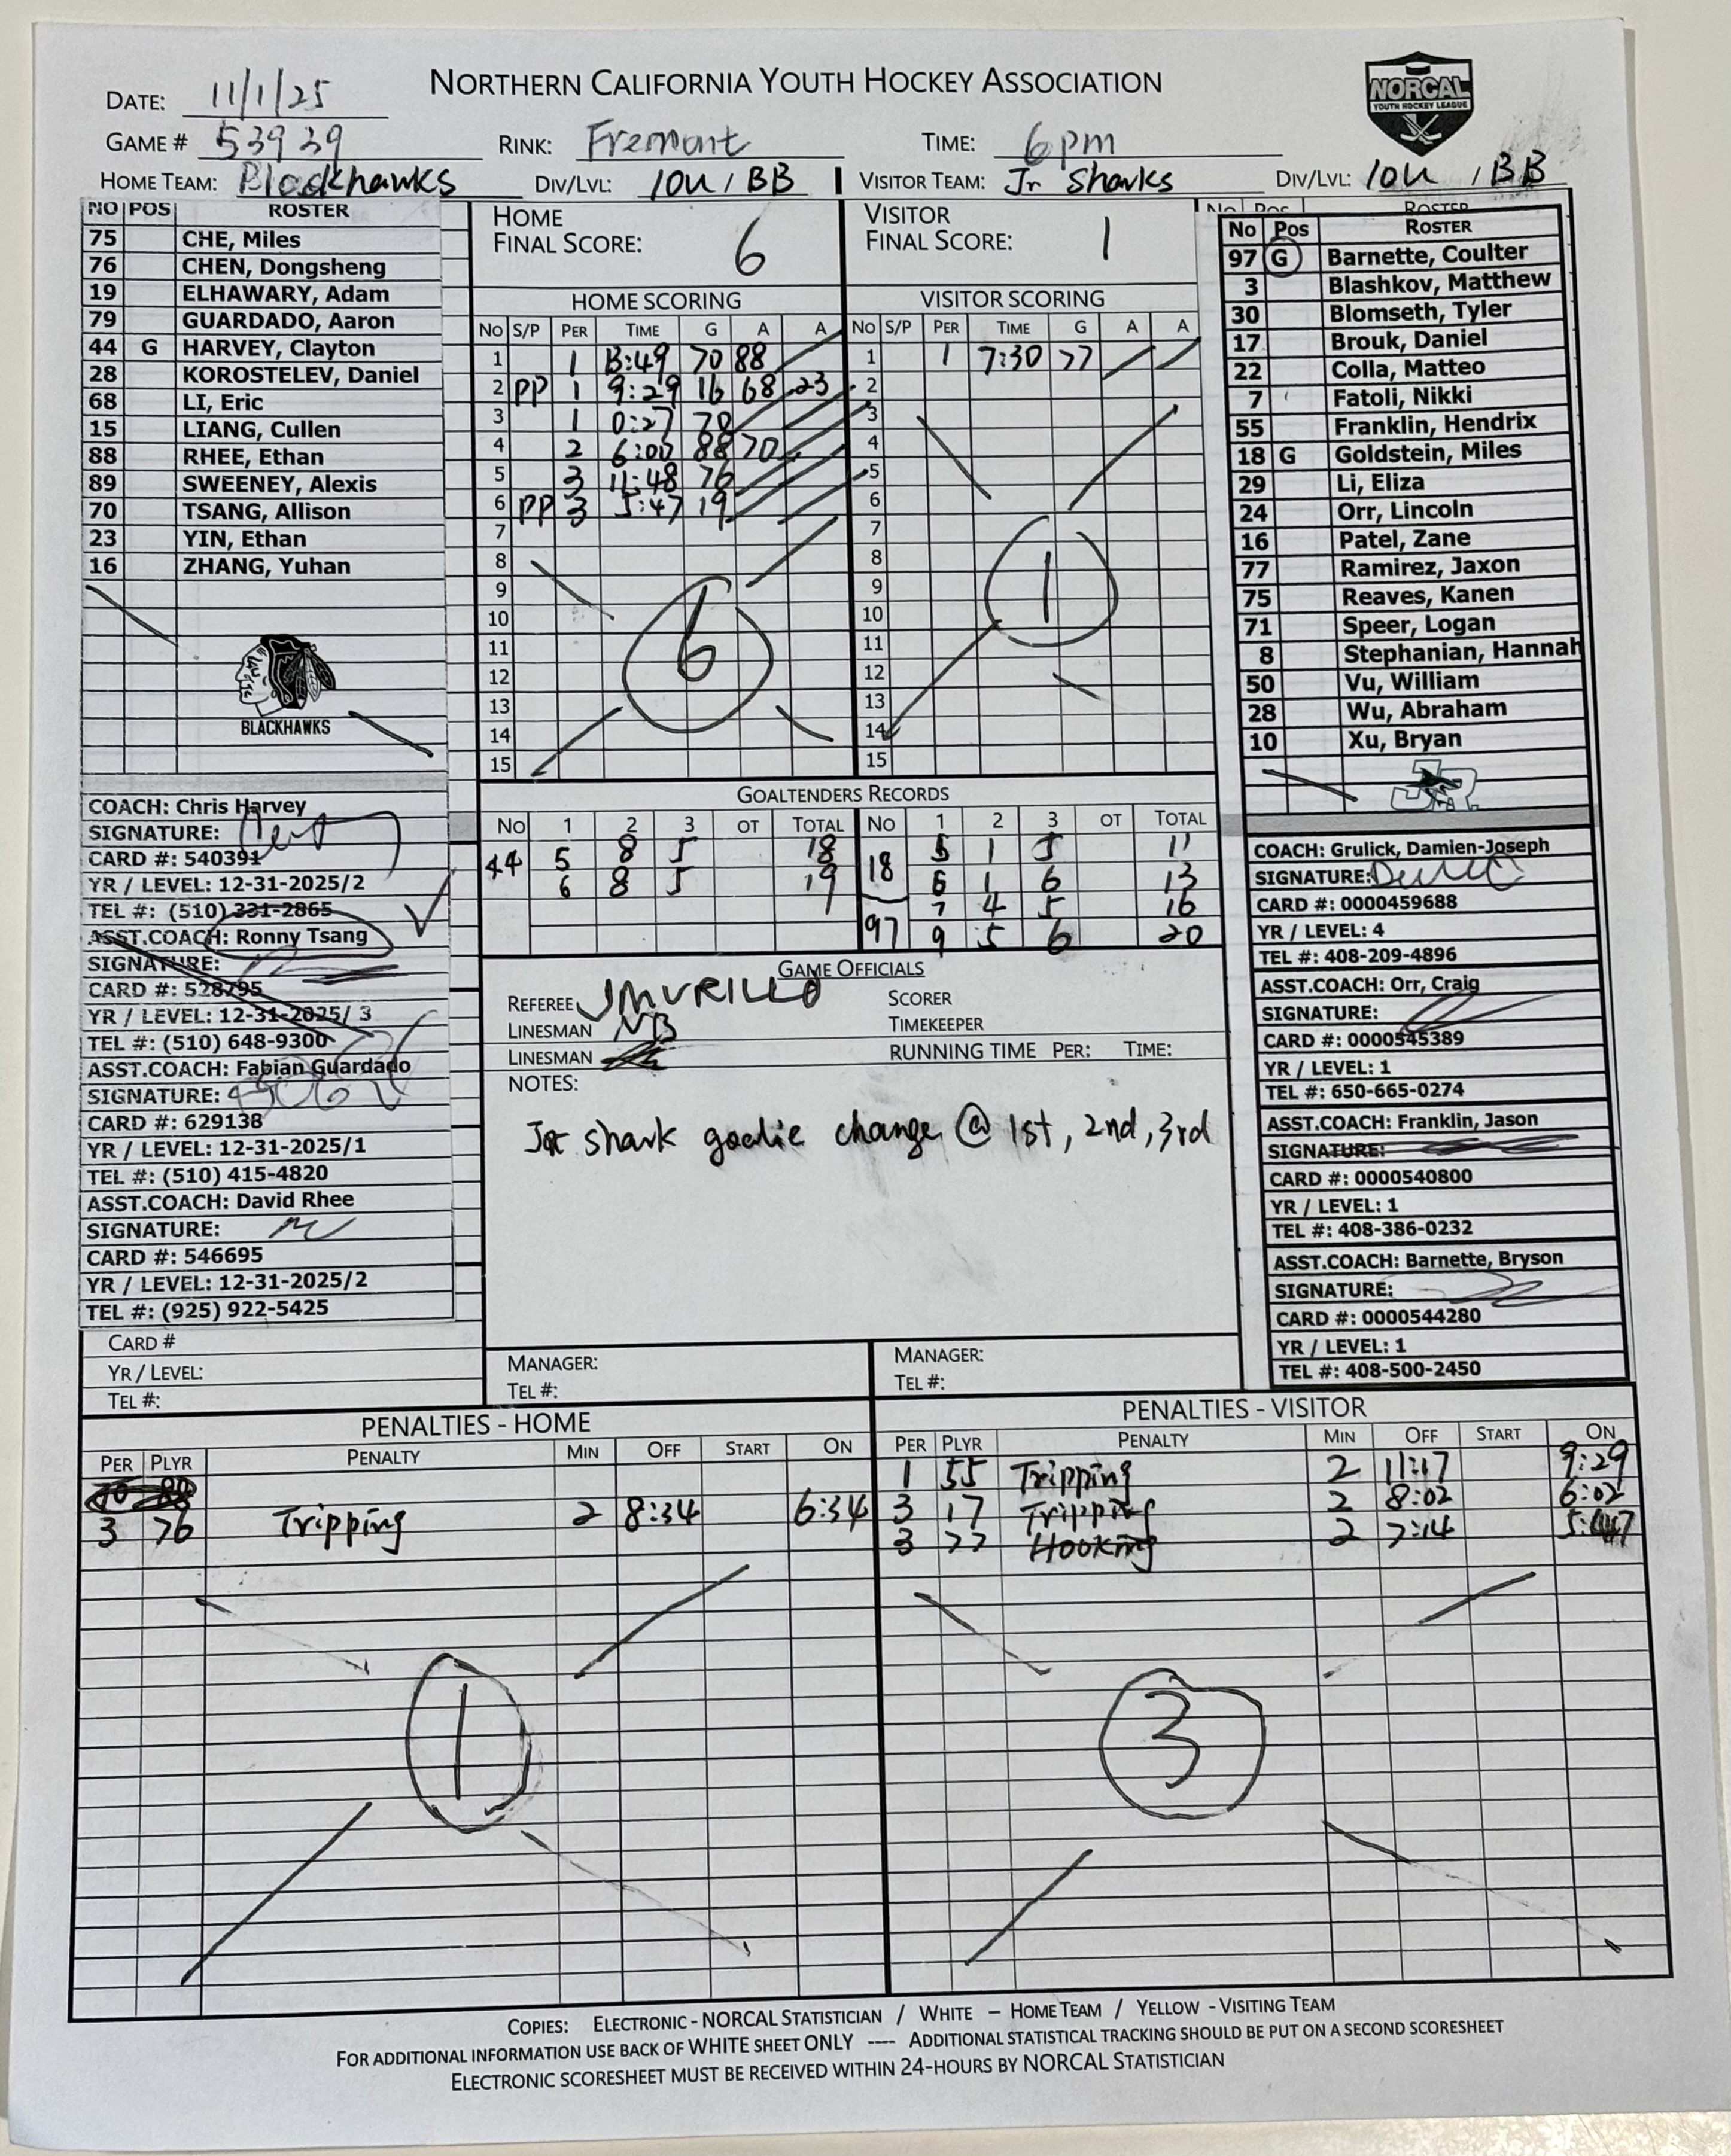 NORTHERN CALIFORNIA YOUTH HOCKEY ASSOCIATION
NORCAL
YOUTH HOCKEY LEAGUE
DATE: 11/1/25
GAME # 53939 RINK: Fremont TIME: 6pm
HOME TEAM: Blackhawks DIV/LVL: 10U / BB VISITOR TEAM: Jr Sharks DIV/LVL: 10U / BB
NO POS ROSTER
75 CHE, Miles
76 CHEN, Dongsheng
19 ELHAWARY, Adam
79 GUARDADO, Aaron
44 G HARVEY, Clayton
28 KOROSTELEV, Daniel
68 LI, Eric
15 LIANG, Cullen
88 RHEE, Ethan
89 SWEENEY, Alexis
70 TSANG, Allison
23 YIN, Ethan
16 ZHANG, Yuhan
BLACKHAWKS
HOME
FINAL SCORE: 6
HOME SCORING
NO S/P PER TIME G A A
1 1 13:49 70 88
2 PP 1 9:29 16 68 23
3 1 0:27 70
4 2 6:00 88 70
5 3 11:48 76
6 PP 3 5:47 19
7
8
9
10
11
12
13
14
15
6
VISITOR
FINAL SCORE: 1
VISITOR SCORING
NO S/P PER TIME G A A
1 1 7:30 77
2
3
4
5
6
7
8
9
10
11
12
13
14
15
1
No Pos ROSTER
No Pos ROSTER
97 G Barnette, Coulter
3 Blashkov, Matthew
30 Blomseth, Tyler
17 Brouk, Daniel
22 Colla, Matteo
7 Fatoli, Nikki
55 Franklin, Hendrix
18 G Goldstein, Miles
29 Li, Eliza
24 Orr, Lincoln
16 Patel, Zane
77 Ramirez, Jaxon
75 Reaves, Kanen
71 Speer, Logan
8 Stephanian, Hannah
50 Vu, William
28 Wu, Abraham
10 Xu, Bryan
JR.
COACH: Chris Harvey
SIGNATURE:
CARD #: 540391
YR / LEVEL: 12-31-2025/2
TEL #: (510) 331-2865
ASST.COACH: Ronny Tsang
SIGNATURE:
CARD #: 528795
YR / LEVEL: 12-31-2025/ 3
TEL #: (510) 648-9300
ASST.COACH: Fabian Guardado
SIGNATURE:
CARD #: 629138
YR / LEVEL: 12-31-2025/1
TEL #: (510) 415-4820
ASST.COACH: David Rhee
SIGNATURE:
CARD #: 546695
YR / LEVEL: 12-31-2025/2
TEL #: (925) 922-5425
CARD #
YR / LEVEL:
TEL #:
GOALTENDERS RECORDS
NO 1 2 3 OT TOTAL NO 1 2 3 OT TOTAL
44 5 8 5 18 18 5 1 5 11
6 8 5 19 6 1 6 13
97 7 4 5 16
9 5 6 20
GAME OFFICIALS
REFEREE JMURILLO SCORER
LINESMAN NB TIMEKEEPER
LINESMAN RUNNING TIME PER: TIME:
NOTES:
Jr shark goalie change @ 1st, 2nd, 3rd
MANAGER:
TEL #:
MANAGER:
TEL #:
COACH: Grulick, Damien-Joseph
SIGNATURE:
CARD #: 0000459688
YR / LEVEL: 4
TEL #: 408-209-4896
ASST.COACH: Orr, Craig
SIGNATURE:
CARD #: 0000545389
YR / LEVEL: 1
TEL #: 650-665-0274
ASST.COACH: Franklin, Jason
SIGNATURE:
CARD #: 0000540800
YR / LEVEL: 1
TEL #: 408-386-0232
ASST.COACH: Barnette, Bryson
SIGNATURE:
CARD #: 0000544280
YR / LEVEL: 1
TEL #: 408-500-2450
PENALTIES - HOME
PER PLYR PENALTY MIN OFF START ON
3 76 Tripping 2 8:34 6:34
1
PENALTIES - VISITOR
PER PLYR PENALTY MIN OFF START ON
1 55 Tripping 2 11:17 9:29
3 17 Tripping 2 8:02 6:02
3 77 Hooking 2 7:14 5:47
3
COPIES: ELECTRONIC - NORCAL STATISTICIAN / WHITE – HOME TEAM / YELLOW - VISITING TEAM
FOR ADDITIONAL INFORMATION USE BACK OF WHITE SHEET ONLY ---- ADDITIONAL STATISTICAL TRACKING SHOULD BE PUT ON A SECOND SCORESHEET
ELECTRONIC SCORESHEET MUST BE RECEIVED WITHIN 24-HOURS BY NORCAL STATISTICIAN